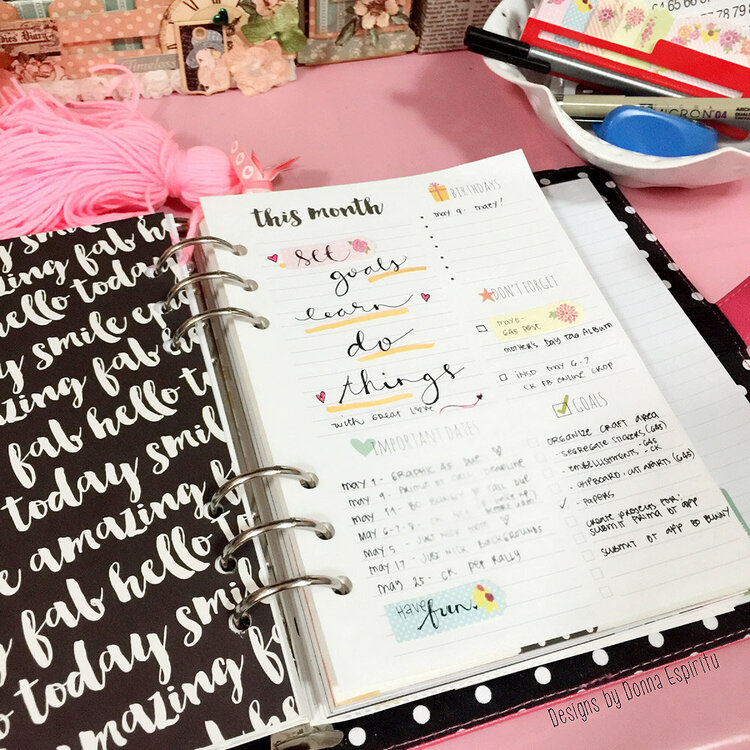 Ladies' Diary
Timeless
64 65 66
77 78 79 8
MICRON 04
ARCH
this month
set
goals
learn
do
things
with great love
BIRTHDAYS
may 9 - mazy!
DON'T FORGET
may 5 -
G45 post
mother's Day Tag Album
iNSD may 6-7
CK FB online crop
GOALS
organize craft area
- segregate stickers (G45)
- embellishments - CK
- chipboard, cut aparts (G45)
- papers
create projects for:
submit prima DT app
submit DT app BO BUNNY
IMPORTANT DATES
may 1 - GRAPHIC 45 DUE
may 9 - PRIMA DT CALL DEADLINE
may 19 - BO BUNNY DT CALL DUE
may 6-7-8 -
may 5 - JUST NICK
may 17 - JUST NICK BACKGROUNDS
may 25 - CK PEP RALLY
HAVE fun
smile
amazing fab he
hello today
day smile
amazing fab
fab hello to
today smil
amazing fa
fab hello
today smil
amazing f
fab hello t
today smile
amazing fa
Designs by Donna Espiritu